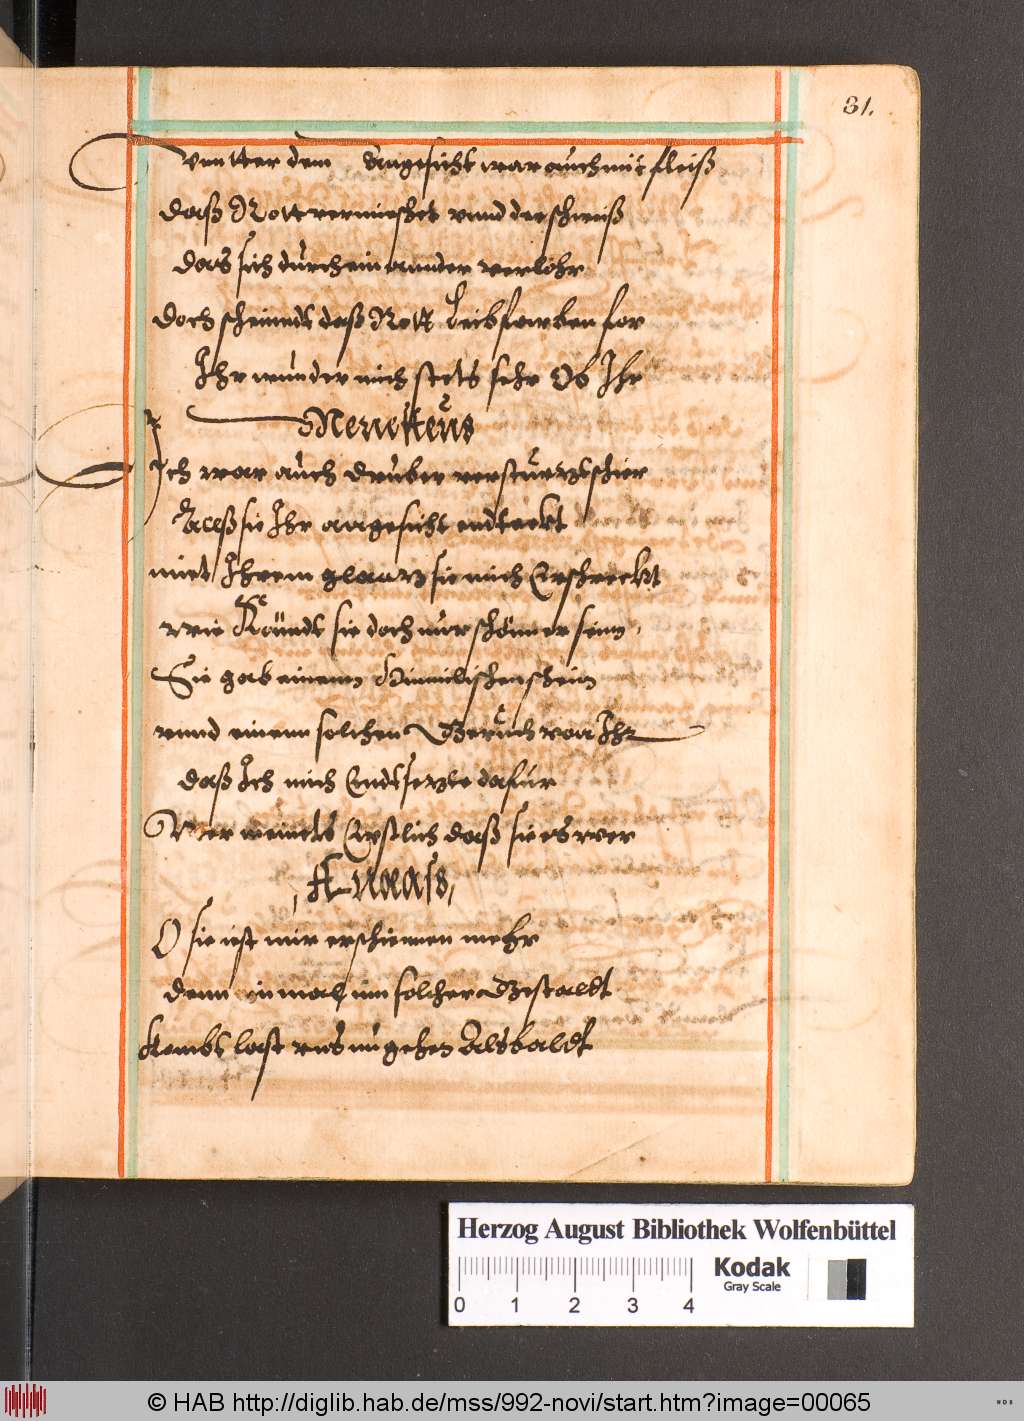 31.
vnntter dem Angesicht war auch mit fleiß
daß Rott vermischet vnnd der schweiß
das sich durch ein annder verlohr
doch scheinndt daß Rott Leibfarben for
Ihr wunder mich stets sehr Ob Ihr
Menelleus
Ich war auch druber versturtzt schier
Allß sie Ihr angesicht endteckt
mit Ihrem glanntz sie mich Erschreckt
wie Köundt sie doch nur schönner seinn
Sie gab einenn Himmlischen schein
vnnd einenn solchen Geruch von Ihr
daß Ich mich Endtsezte dafur
Wer meinets Erstlich daß sie es wer
Anaass
O sie ist mir erschiennen mehr
denn einmahl inn solcher Gestaldt
Kombt last vns nu gehen Alsbaldt
Herzog August Bibliothek Wolfenbüttel
0 1 2 3 4
Kodak
Gray Scale
© HAB http://diglib.hab.de/mss/992-novi/start.htm?image=00065